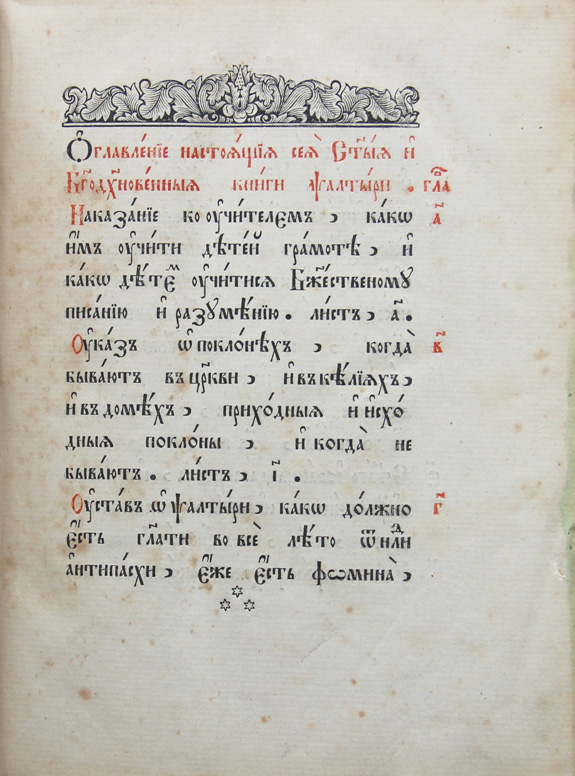 Ѻ҆главле́нїе настоѧ́щїѧ сеѧ̀ Ст҃ы́ѧ и҆
Бг҃одх҃нове́нныѧ книги ѱалты́ри . гла̑
Наказа́нїе ко оу҆чи́телемъ , ка́кѡ а҃
и҆̀мъ оу҆чи́ти дѣте́й гра́мотѣ , и҆
ка́кѡ дѣ́темъ оу҆чи́тисѧ Бж҃е́ственомꙋ
писа́нїю и҆ разꙋмѣ́нїю . ли́стъ , а҃ .
Оу҆ка́зъ ѡ҆ покло́нѣхъ , когда̀ в҃
быва́ютъ въ цр҃кви , и҆ въ кѣ́лїѧхъ ,
и҆ въ домѣ́хъ , прихо́дныѧ и҆ и҆схо́
дныѧ покло́ны , и҆ когда̀ не
быва́ютъ . ли́стъ , і҃ .
Оу҆ста́въ ѡ҆ ѱалты́ри , ка́кѡ до́лжно г҃
є҆́сть гл҃ати во всѐ лѣ́то ѿ нд҃ли
а҆нтипа́схи , є҆́же є҆́сть фѡмина̀ ,